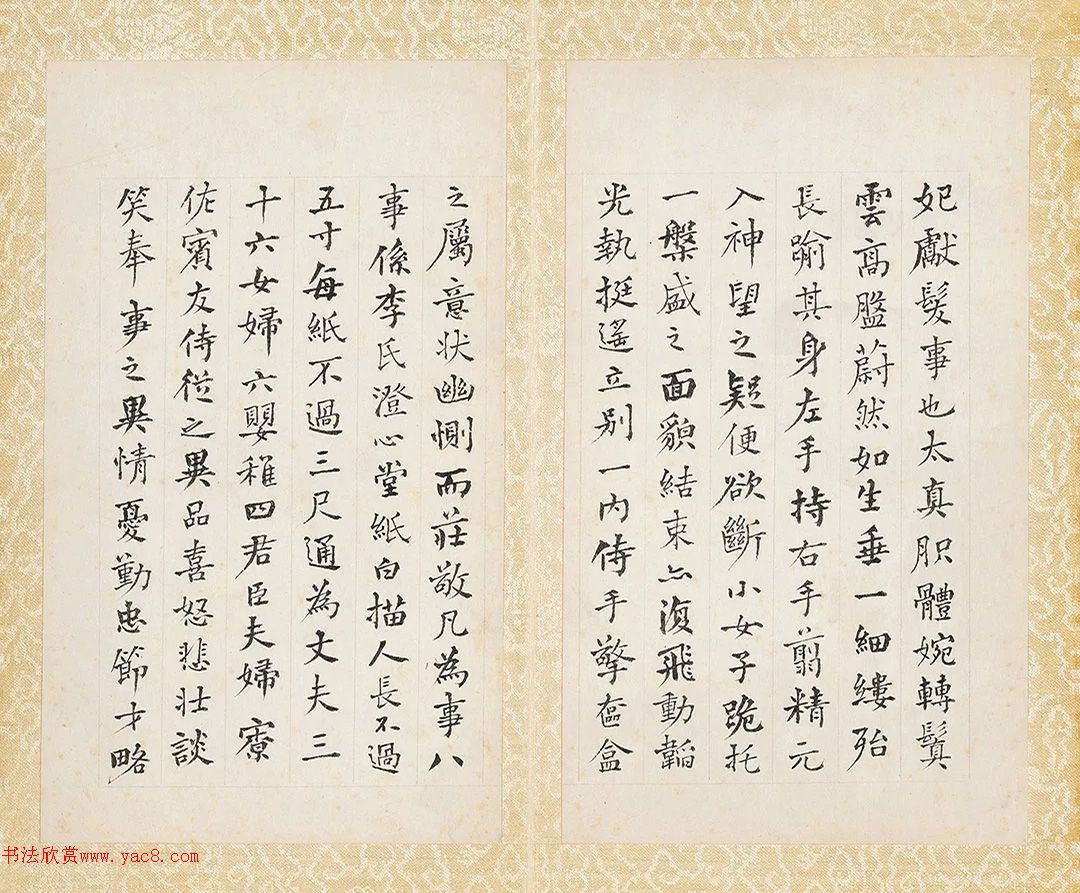 妃獻髮事也太真肌體婉轉鬒
雲高盤蔚然如生垂一細縷殆
長踰其身左手持右手翦精元
入神望之疑便欲斷小女子跪托
一槃盛之面貌結束亦復飛動韜
光執挺遥立别一内侍手擎奩盒
之屬意状幽惻而莊敬凡為事八
事係李氏澄心堂紙白描人長不過
五寸每紙不過三尺通為丈夫三
十六女婦六嬰稚四君臣夫婦寮
佐賓友侍從之異品喜怒悲壮談
笑奉事之異情憂勤忠節才略
书法欣赏www.yac8.com